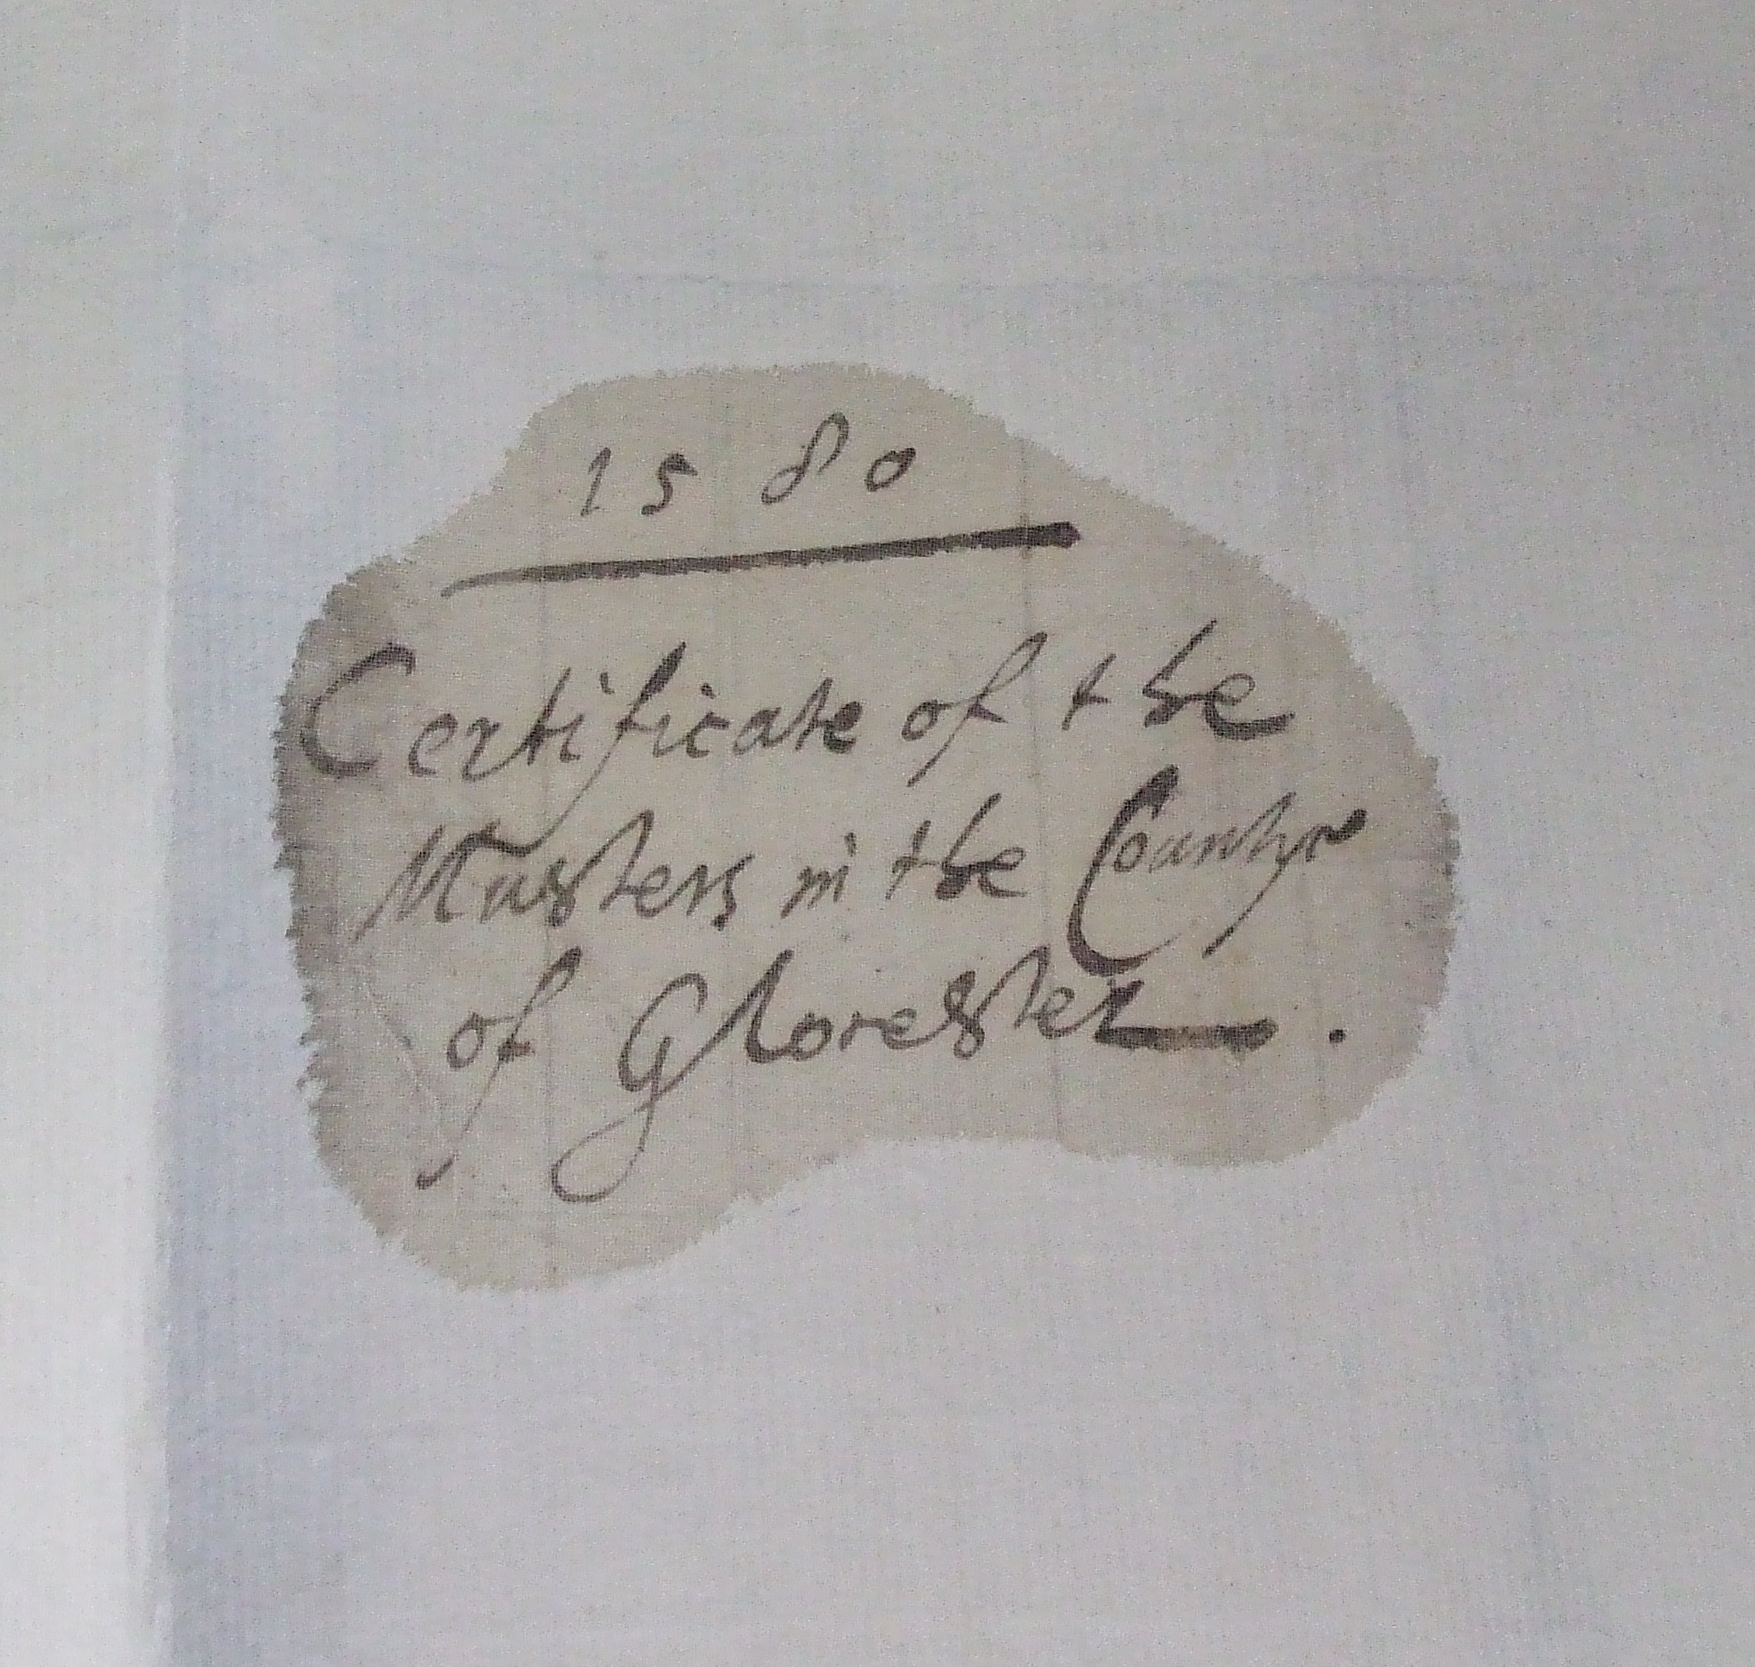 1580
Certificate of the
Musters in the Countye
of Glocester .